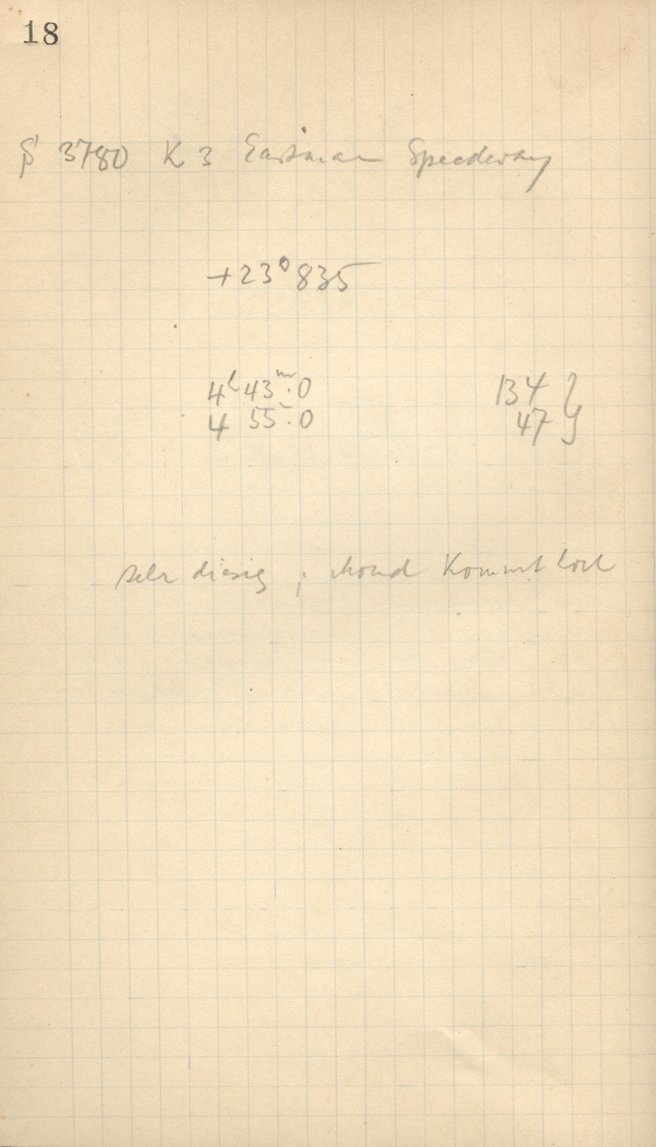 18
3780 K 3 Eastman Speedway
+23° 835
4h 43m.0 134 }
4 55.0 47
sehr diesig ; Mond kommt hoch